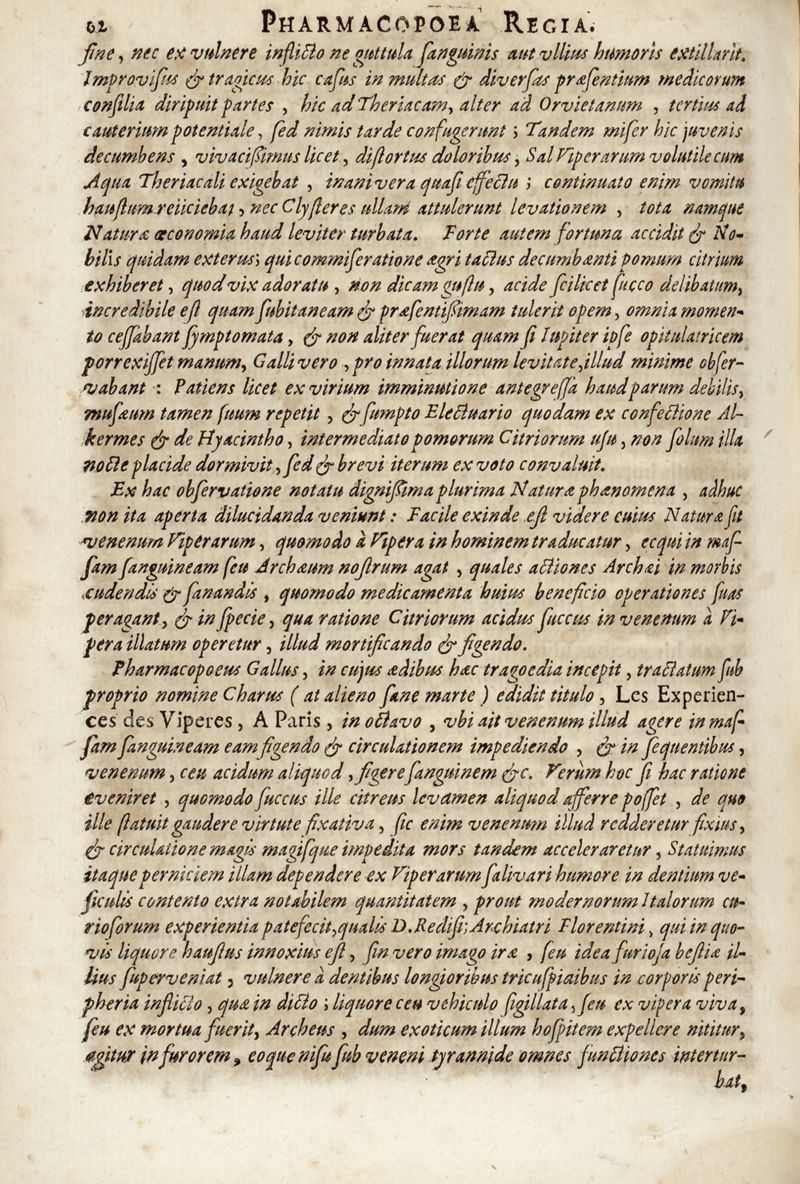 62 PHARMACOPOEA REGIA.
ſine, nec ex vulnere inflicto ne guttula ſanguinis aut vllius humoris extillarit.
Improviſus & tragicus hic caſus in multas & diverſas præſentium medicorum
conſilia diripuit partes , hic ad Theriacam, alter ad Orvietanum , tertius ad
cauterium potentiale, ſed nimis tarde confugerunt ; Tandem miſer hic juvenis
decumbens , vivaciſſimus licet, diſtortus doloribus, Sal Viperarum volutile cum
Aqua Theriacali exigebat , inani vera quaſi effectu ; continuato enim vomitu
hauſtum reiiciebat, nec Clyſteres ullam attulerunt levationem , tota namque
Naturæ œconomia haud leviter turbata. Forte autem fortuna accidit & No-
bilis quidam exterus; qui commiſeratione ægri tactus decumbænti pomum citrium
exhiberet, quod vix adoratu , non dicam guſtu, acide ſcilicet ſucco delibatum,
incredibile eſt quam ſubitaneam & præſentiſſimam tulerit opem, omnia momen-
to ceſſabant ſymptomata, & non aliter fuerat quam ſi Iupiter ipſe opitulatricem
porrexiſſet manum, Galli vero , pro innata illorum levitate, illud minime obſer-
vabant : Patiens licet ex virium imminutione antegreſſa haud parum debilis,
muſæum tamen ſuum repetit , & ſumpto Electuario quodam ex confectione Al-
kermes & de Hyacintho, intermediato pomorum Citriorum uſu, non ſolum illa
nocte placide dormivit, ſed & brevi iterum ex voto convaluit.
Ex hac obſervatione notatu digniſſima plurima Naturæ phænomena , adhuc
non ita aperta dilucidanda veniunt : Facile exinde eſt videre cuius Naturæ ſit
venenum Viperarum, quomodo à Vipera in hominem traducatur, ecqui in maſ-
ſam ſanguineam ſeu Archæum noſtrum agat , quales actiones Archæi in morbis
cudendis & ſanandis , quomodo medicamenta huius beneficio operationes ſuas
peragant, & in ſpecie, qua ratione Citriorum acidus ſuccus in venenum à Vi-
pera illatum operetur, illud mortificando & figendo.
Pharmacopoeus Gallus, in cujus ædibus hæc tragoedia incepit, tractatum ſub
proprio nomine Charus ( at alieno ſane marte ) edidit titulo, Les Experien-
ces des Viperes, A Paris , in octavo , vbi ait venenum illud agere in maſ-
ſam ſanguineam eam figendo & circulationem impediendo , & in ſequentibus,
venenum, ceu acidum aliquod , figere ſanguinem &c. Verùm hoc ſi hac ratione
eveniret , quomodo ſuccus ille citreus levamen aliquod afferre poſſet , de quo
ille ſtatuit gaudere virtute fixativa, ſic enim venenum illud redderetur fixius,
& circulatione magis magiſque impedita mors tandem acceleraretur, Statuimus
itaque perniciem illam dependere ex Viperarum ſalivari humore in dentium ve-
ſiculis contento extra notabilem quantitatem , prout modernorum Italorum cu-
rioſorum experientia patefecit, qualis D. Rediſi; Archiatri Florentini, qui in quo-
vis liquore hauſtus innoxius eſt, ſin vero imago iræ , ſeu idea furioſa beſtiæ il-
lius ſuperveniat, vulnere à dentibus longioribus tricuſpiaibus in corporis peri-
pheria inflicto, quæ in dicto ; liquore ceu vehiculo ſigillata, ſeu ex vipera viva,
ſeu ex mortua fuerit, Archeus , dum exoticum illum hoſpitem expellere nititur,
agitur in furorem , eoque niſu ſub veneni tyrannide omnes functiones intertur-
bat,